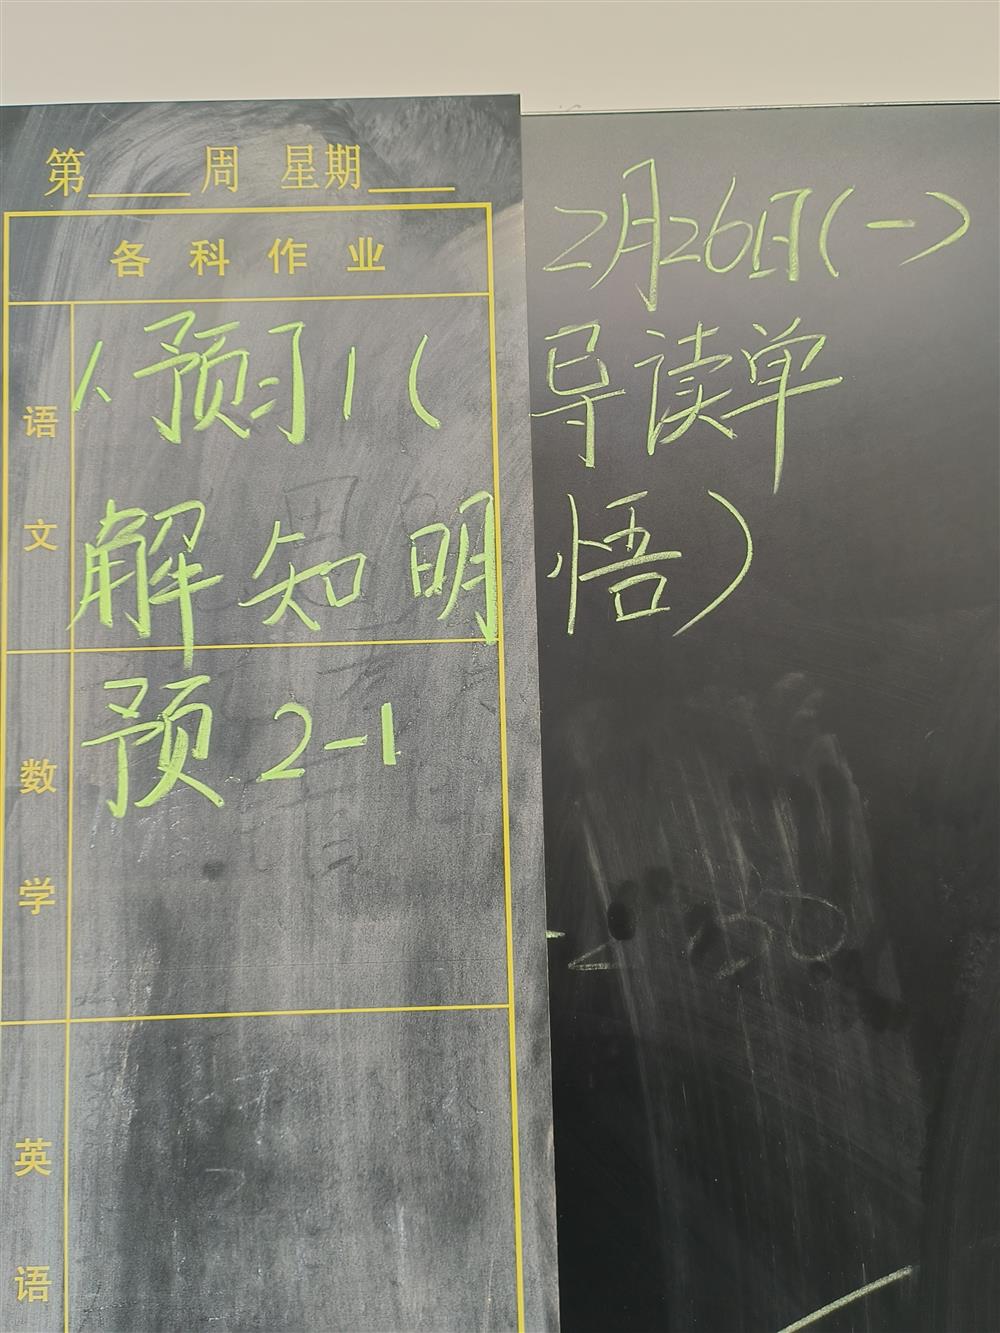 第 周 星期
2月26日(一)
各科作业
语文
1、预习1(导读单
解知明悟)
数学
预2-1
英语